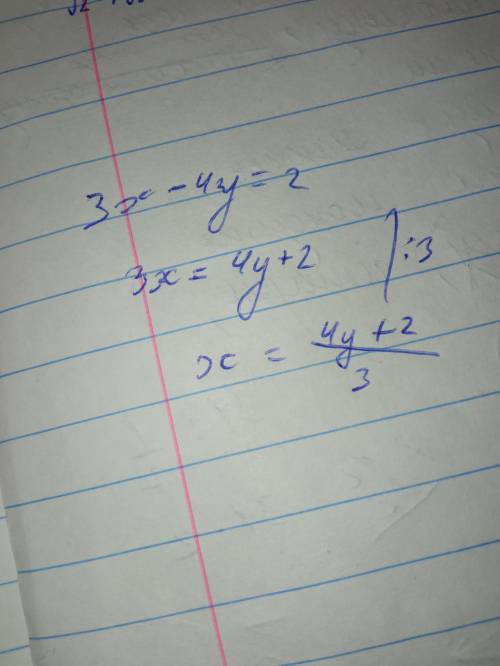 3x - 4y = 2
3x = 4y + 2 | : 3
x = \frac{4y + 2}{3}